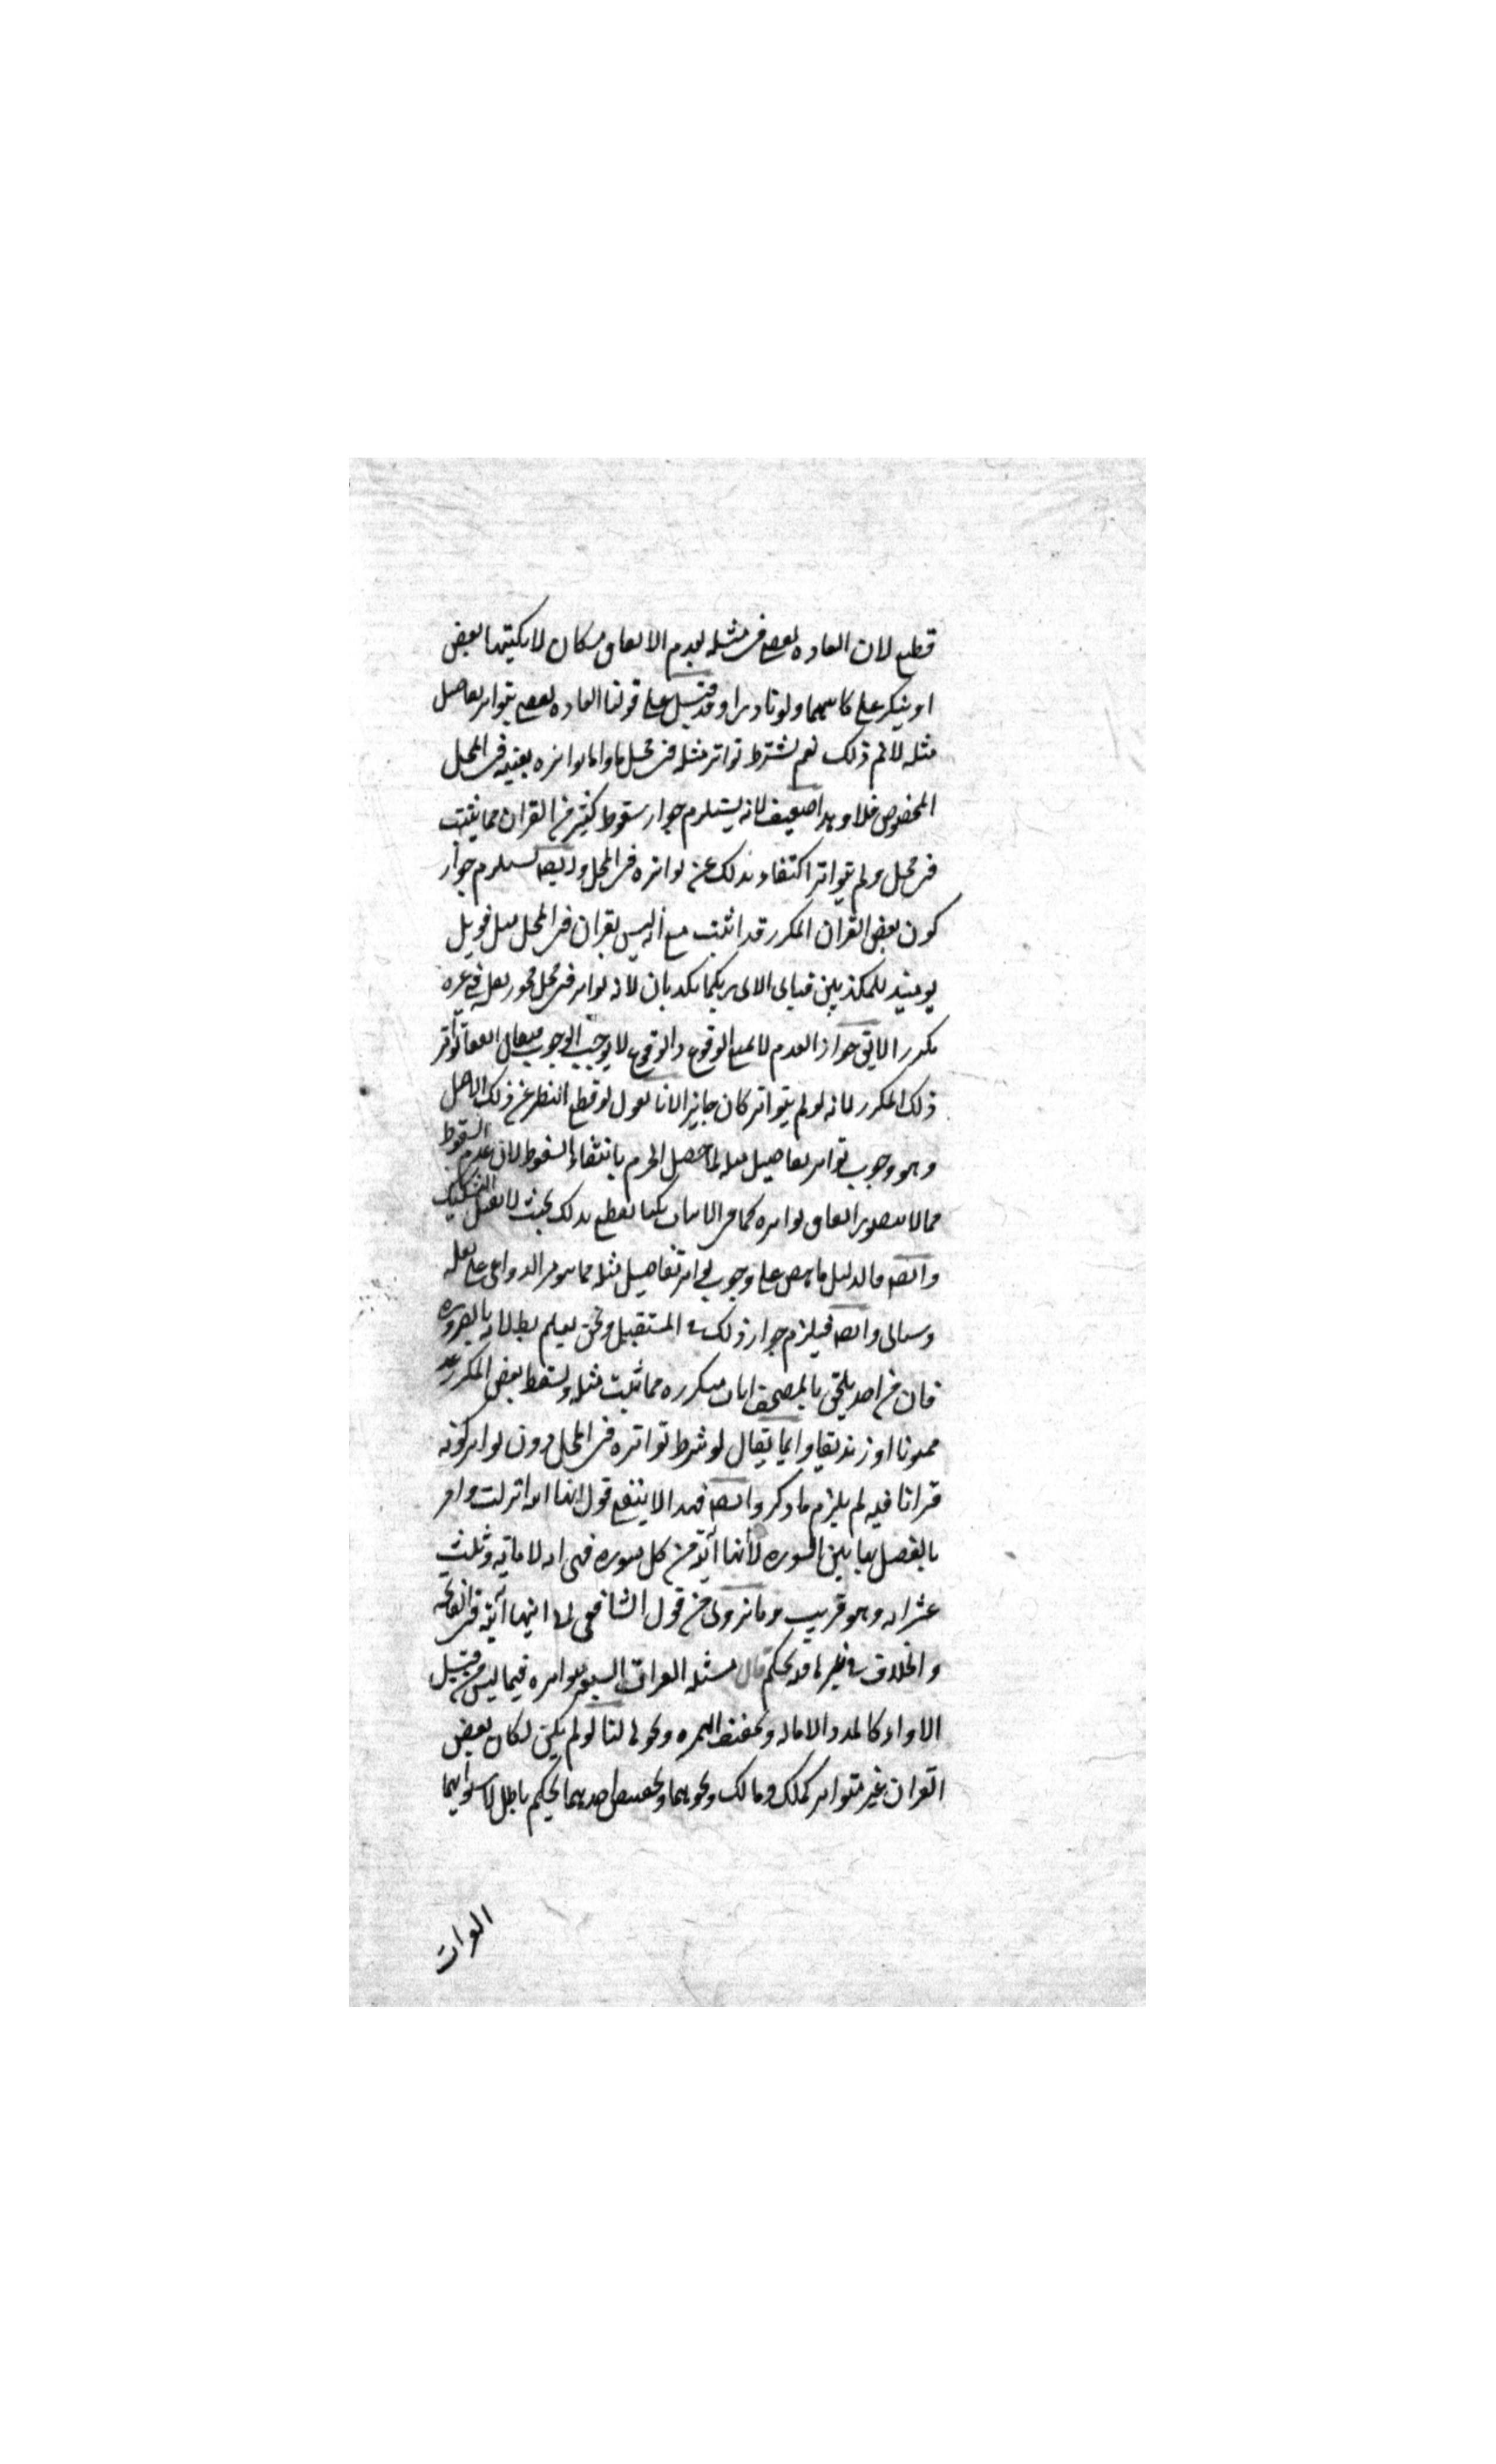 قطع لان العاده تقضى فى مثله بعدم الاتفاق فكان لا يكتبها بعض
او ينكر على كاتبهما ولو نادرا وقد قيل على قولنا العاده تقضى بتواتر تفاصيل
مثله لا نم ذلك نعم نشترط تواتر مثله فى محل ما واما تواتره بعينه فى المحل
المخصوص فلا وهذا ضعيف لانه يستلزم جواز سقوط كثير من القران مما يثبت
فى محل ولم يتواتر اكتفاء بذلك عن تواتره فى المحل وايضه يستلزم جواز
كون بعض القران المكرر قد اثبت مع انه ليس بقران فى المحل مثل فويل
يومئذ للمكذبين فباى الاء ربكما تكذبان لانه تواتر فى محل فجوز نقله فى غيره
مكررا لا يق جواز العدم لا يمنع الوقوع والوقوع لا يوجب الوجوب فيقال اتفق تواتر
ذلك المكرر لانه لو لم يتواتر كان جايزا لانا نقول لو قطع النظر عن ذلك الاصل
وهو وجوب تواتر تفاصيل مثله لما حصل الجزم بانتفاء السقوط لان عدم السقوط
مما لا يتصور اتفاق تواتره كما فى الاثبات لكنا نقطع بذلك بحيث لا يقبل التشكيك
وايضه فالدليل ناهض على وجوب تواتر تفاصيل مثله مما يتوفر الدواعى على نقله
وسياتى وايضه فيلزم جواز ذلك فى المستقبل ونحن نعلم بطلانه بالضروره
فان من احد يلحق بالمصحف ايات مكرره مما ثبت مثله ويسقط بعض المكرر عد
مجنونا او زنديقا وانما يقال لو شرط تواتره فى المحل دون تواتر كونه
قرانا فيه لم يلزم ما ذكر وايضه فهذا لا ينفع قول انها ايه انزلت وامر
بالفصل بها بين السوره لا أنها آية من كل سوره فهى ايه لا مائة وثلث
عشر ايه وهو قريب وما تروى من قول الشافعى لها انها آية فى الفاتحه
والخلاف فى غيرها فتحكم قال مسئله القرات السبع متواتره فيما ليس من قبيل
الاداء كالمد والاماله وتخفيف الهمزه ونحوها لنا لو لم يكن لكان بعض
القران غير متواتر كملك ومالك ونحوهما وتخصيص احدهما تحكم باطل لاستوائهما
القرات